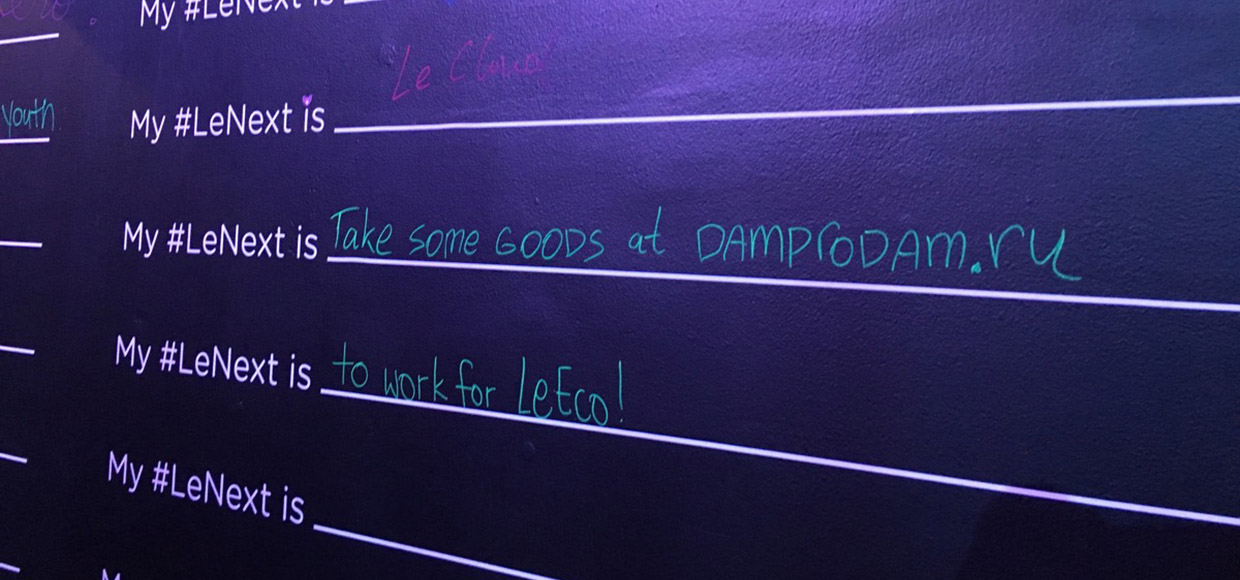 My #LeNext is
youth
My #LeNext is Le Cloud
My #LeNext is Take some GOODS at DAMProDAM.ru
My #LeNext is to work for LeEco!
My #LeNext is